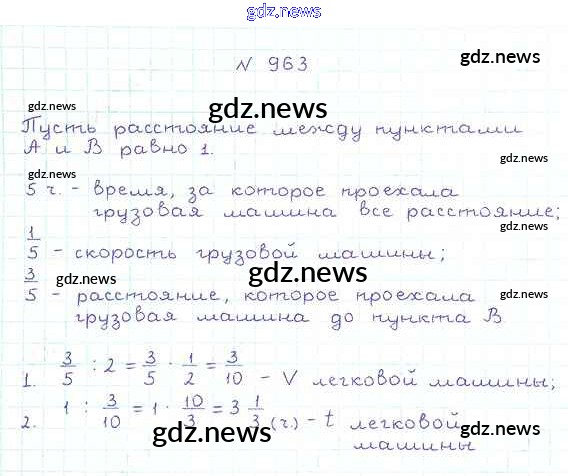 gdz.news
№ 963
gdz.news
gdz.news
gdz.news
Пусть расстояние между пунктами
А и В равно 1.
gdz.news
5 ч. - время, за которое проехала
грузовая машина все расстояние;
gdz.news
1/5 - скорость грузовой машины;
gdz.news
gdz.news
gdz.news
3/5 - расстояние, которое проехала
грузовая машина до пункта В
1. 3/5 : 2 = 3/5 · 1/2 = 3/10 - V легковой машины;
2. 1 : 3/10 = 1 · 10/3 = 3 1/3 (ч.) - t легковой
машины
gdz.news
gdz.news